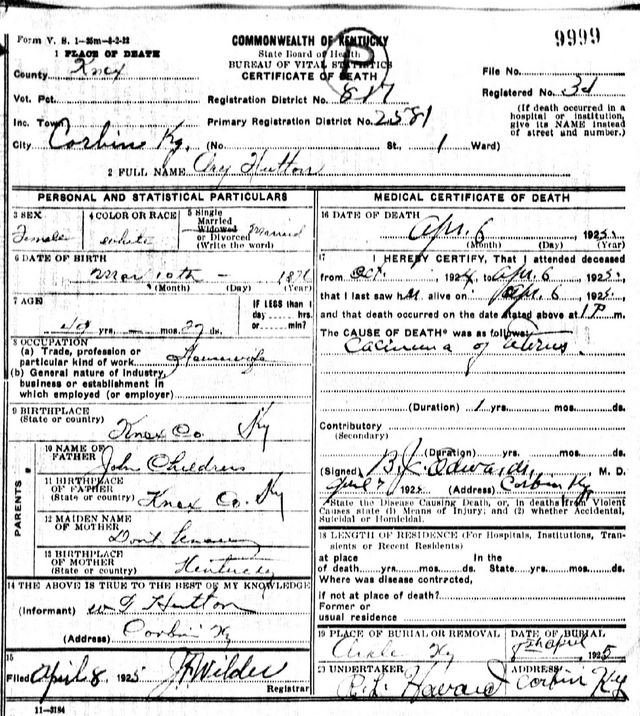 Form V. S. 1—35m—8-2-22
COMMONWEALTH OF KENTUCKY
State Board of Health
BUREAU OF VITAL STATISTICS
CERTIFICATE OF DEATH
P
9999
1 PLACE OF DEATH
County Knox
File No.
Vot. Pct.
Registration District No. 817
Registered No. 31
Inc. Town
Primary Registration District No. 2581
(If death occurred in a hospital or institution, give its NAME instead of street and number.)
City Corbin Ky. (No. St., 1 Ward)
2 FULL NAME Hutton
PERSONAL AND STATISTICAL PARTICULARS
3 SEX
Female
4 COLOR OR RACE
white
5 Single
Married
Widowed
or Divorced
(Write the word)
Married
6 DATE OF BIRTH
Mar 10th — 187
(Month) (Day) (Year)
7 AGE
49 yrs. — mos. 27 ds.
IF LESS than 1
day ...... hrs.
or ...... min?
8 OCCUPATION
(a) Trade, profession or
particular kind of work Housewife
(b) General nature of industry,
business or establishment in
which employed (or employer)
9 BIRTHPLACE
(State or country)
Knox Co. Ky
PARENTS
10 NAME OF
FATHER
John Childress
11 BIRTHPLACE
OF FATHER
(State or country)
Knox Co. Ky
12 MAIDEN NAME
OF MOTHER
Dont
13 BIRTHPLACE
OF MOTHER
(State or country)
Kentucky
14 THE ABOVE IS TRUE TO THE BEST OF MY KNOWLEDGE
(Informant) W Hutton
(Address) Corbin Ky
15
Filed April 8 1925 Wilder
Registrar
11—3184
MEDICAL CERTIFICATE OF DEATH
16 DATE OF DEATH
Apr. 6, 1925.
(Month) (Day) (Year)
17 I HEREBY CERTIFY, That I attended deceased
from Oct. 1924, to Apr. 6 1925.
that I last saw h alive on Apr. 6 1925.
and that death occurred on the date stated above at 1 P m.
The CAUSE OF DEATH* was as follows:
Cacinoma of uterus.
(Duration) 1 yrs. mos. ds.
Contributory
(Secondary)
(Duration) yrs. mos. ds.
(Signed) Edwards, M. D.
April 7 1925 (Address) Corbin Ky
*State the Disease Causing Death, or, in deaths from Violent
Causes state (1) Means of Injury; and (2) whether Accidental,
Suicidal or Homicidal.
18 LENGTH OF RESIDENCE (For Hospitals, Institutions, Tran-
sients or Recent Residents)
at place In the
of death yrs. mos. ds. State yrs. mos. ds.
Where was disease contrected,
if not at place of death?
Former or
usual residence
19 PLACE OF BURIAL OR REMOVAL
Ky
DATE OF BURIAL
8th April 1925
20 UNDERTAKER
ADDRESS
Corbin Ky